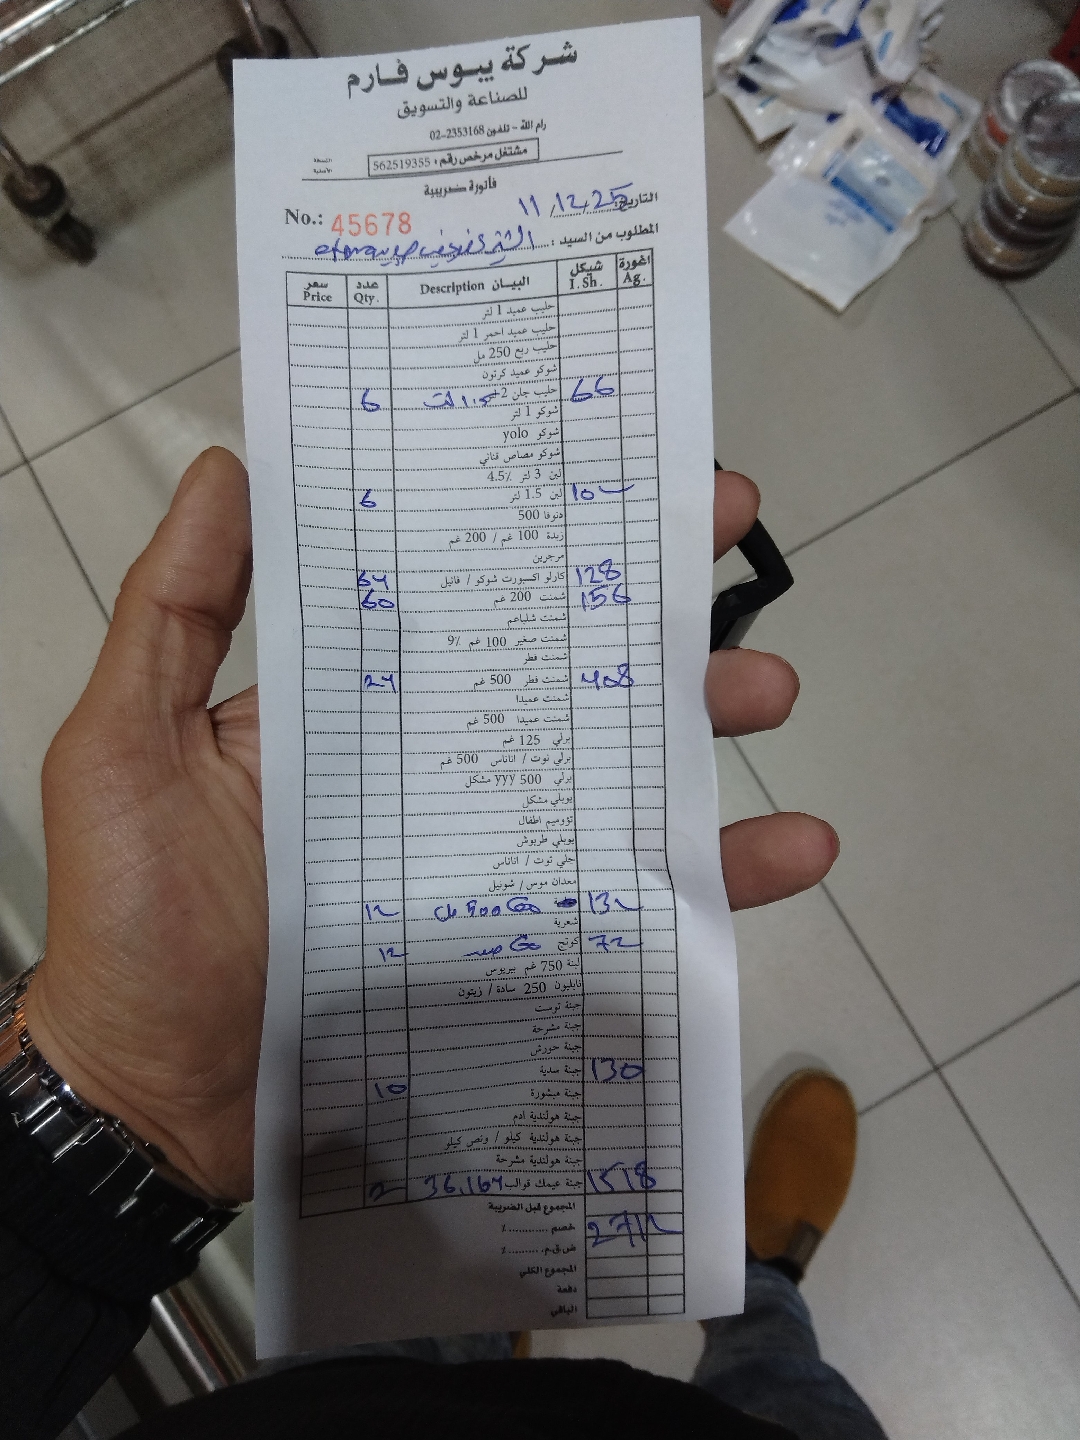 شركة يبوس فارم
للصناعة والتسويق
رام الله - تلفون 02-2353168
مشتغل مرخص رقم: 562519355
النسخة الأصلية
فاتورة ضريبية
No.: 45678
التاريخ: 11/12/25
المطلوب من السيد:
سعر Price عدد Qty. البيان Description شيكل I.Sh. اغورة Ag.
حليب عميد 1 لتر
حليب عميد احمر 1 لتر
حليب ربع 250 مل
شوكو عميد كرتون
6 حليب جلن 2 1.5 لتر 66
شوكو 1 لتر
شوكو yolo
شوكو مصاص قناني
لبن 3 لتر 4.5%
6 لبن 1.5 لتر 102
دنوفا 500
زبدة 100 غم / 200 غم
مرجرين
64 كارلو اكسبورت شوكو / فانيل 128
60 شمنت 200 غم 156
شمنت شلباهم
شمنت صغير 100 غم 9%
شمنت فطر
24 شمنت فطر 500 غم 408
شمنت عميدا
شمنت عميدا 500 غم
برلي 125 غم
برلي توت / اناناس 500 غم
برلي 500 yyy مشكل
يوبلي مشكل
تؤوميم اطفال
يوبلي طربوش
جلي توت / اناناس
معدان موس / شونيل
12 500 مل 132
شعرية
12 كوتج 72
لبنة 750 غم بيريوس
نابليون 250 سادة / زيتون
جبنة توست
جبنة مشرحة
جبنة حورش
جبنة سدية 130
10 جبنة مبشورة
جبنة هولندية ادم
جبنة هولندية كيلو / ونص كيلو
جبنة هولندية مشرحة
2 جبنة عيمك قوالب 36,164 1518
المجموع قبل الضريبة
خصم ............ % 2712
ض.ق.م. .......... %
المجموع الكلي
دفعة
الباقي